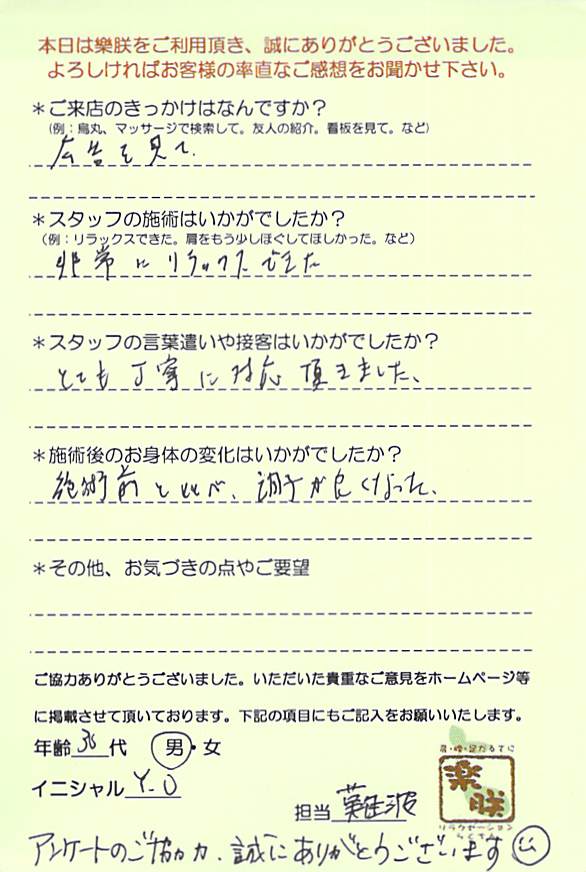 本日は樂朕をご利用頂き、誠にありがとうございました。
よろしければお客様の率直なご感想をお聞かせ下さい。
＊ご来店のきっかけはなんですか？
（例：烏丸、マッサージで検索して。友人の紹介。看板を見て。など）
広告を見て、
＊スタッフの施術はいかがでしたか？
（例：リラックスできた。肩をもう少しほぐしてほしかった。など）
非常にリラックスできた
＊スタッフの言葉遣いや接客はいかがでしたか？
とても丁寧に対応頂きました、
＊施術後のお身体の変化はいかがでしたか？
施術前と比べ、調子が良くなった、
＊その他、お気づきの点やご要望
ご協力ありがとうございました。いただいた貴重なご意見をホームページ等
に掲載させて頂いております。下記の項目にもご記入をお願いいたします。
年齢 36 代 男・女
イニシャル Y.O
担当
樂朕
リラクゼーション
らくちん
アンケートのご協力、誠にありがとうございます